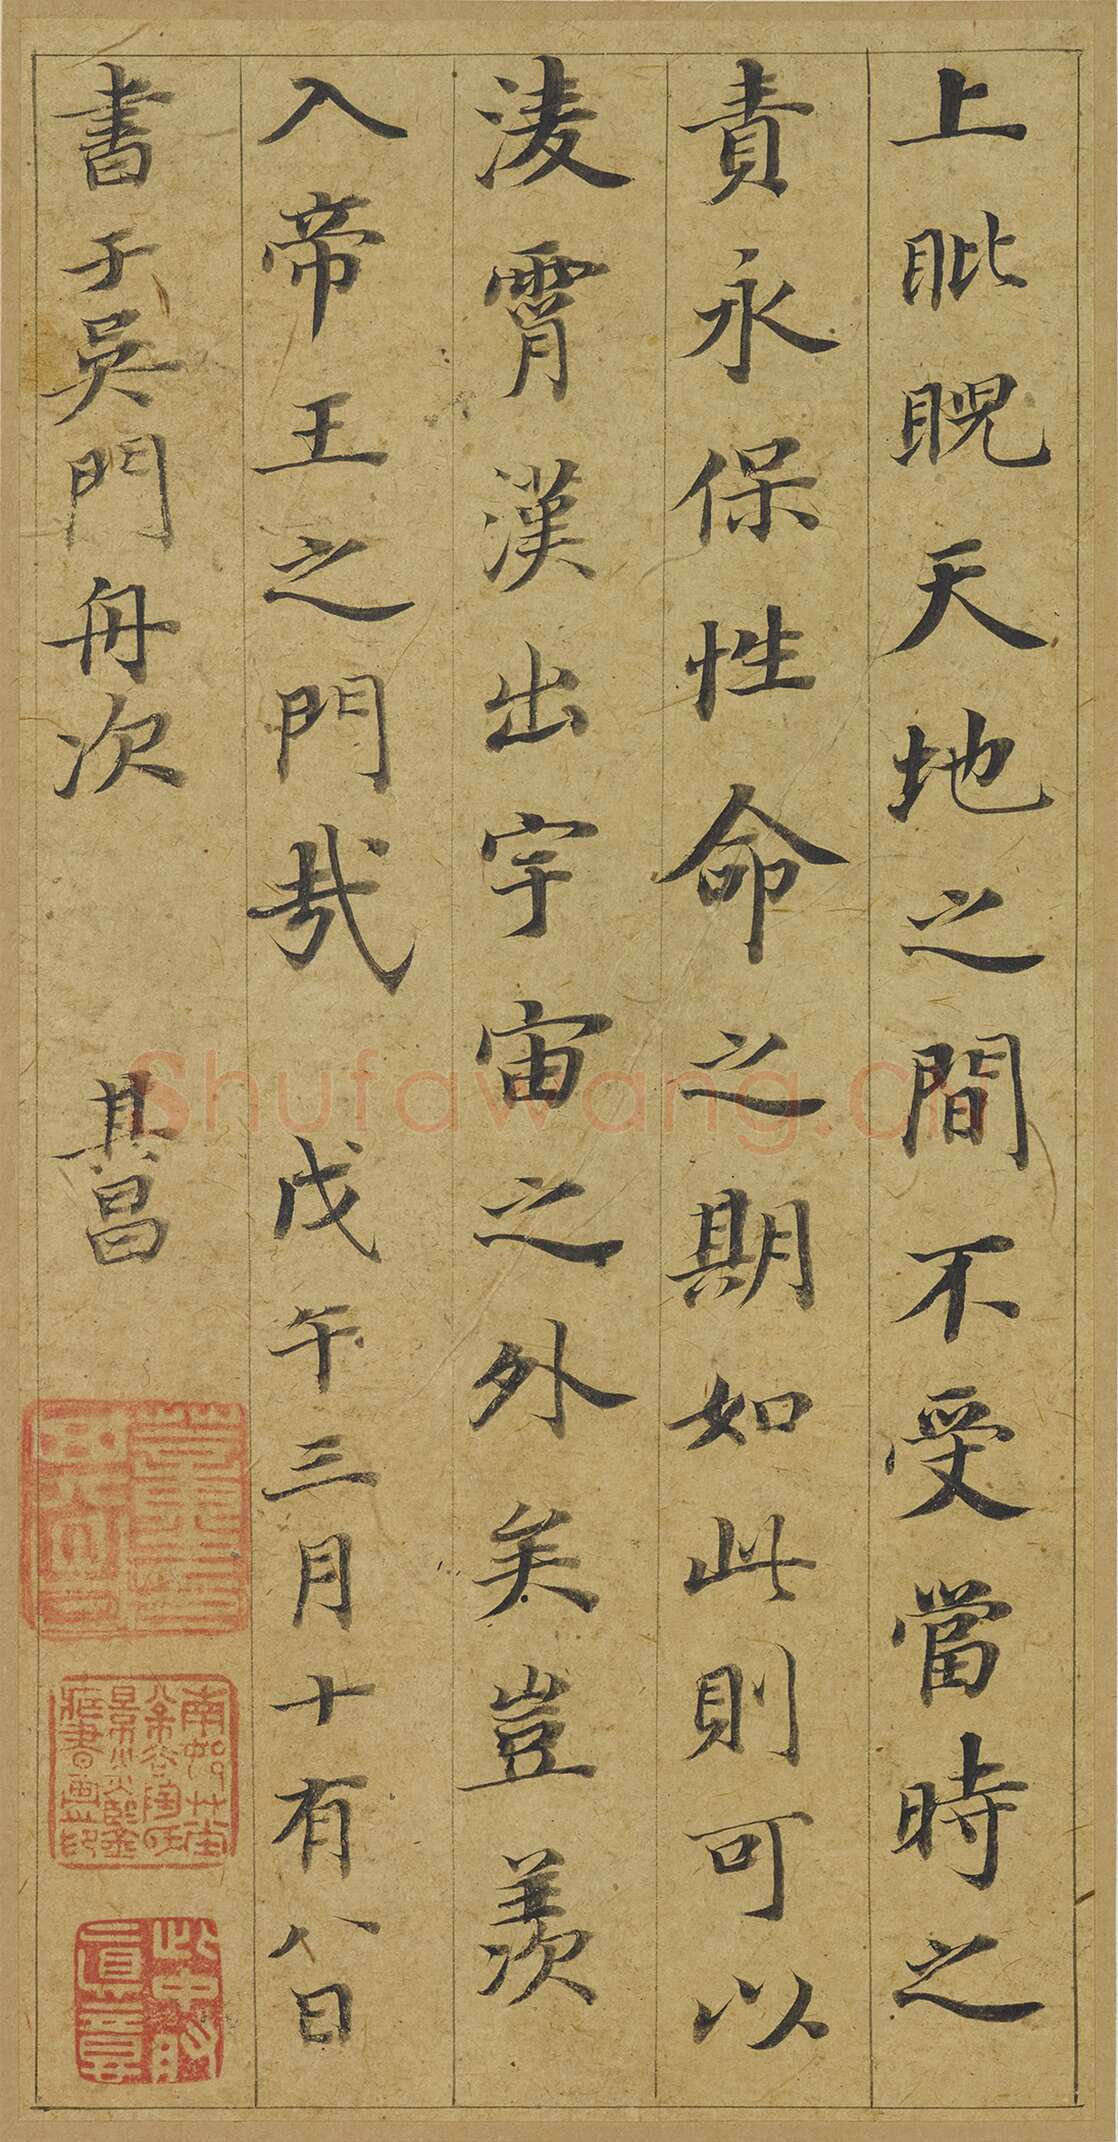 上睥睨天地之間不受當時之
責永保性命之期如此則可以
凌霄漢出宇宙之外矣豈羨
入帝王之門哉 戊午三月十有八日
書于吳門舟次 其昌
Shufawang.cn